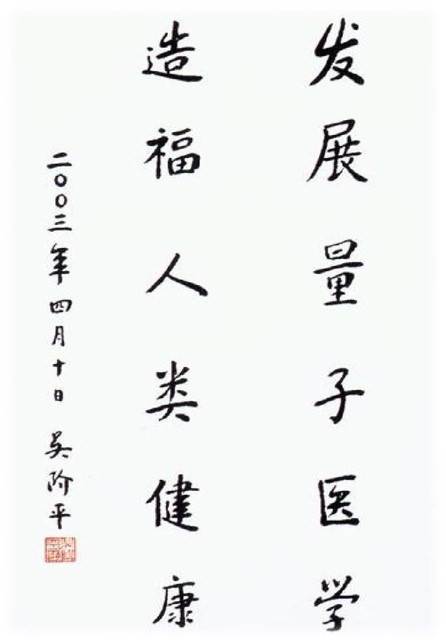 发展量子医学
造福人类健康
二〇〇三年四月十日 吴阶平